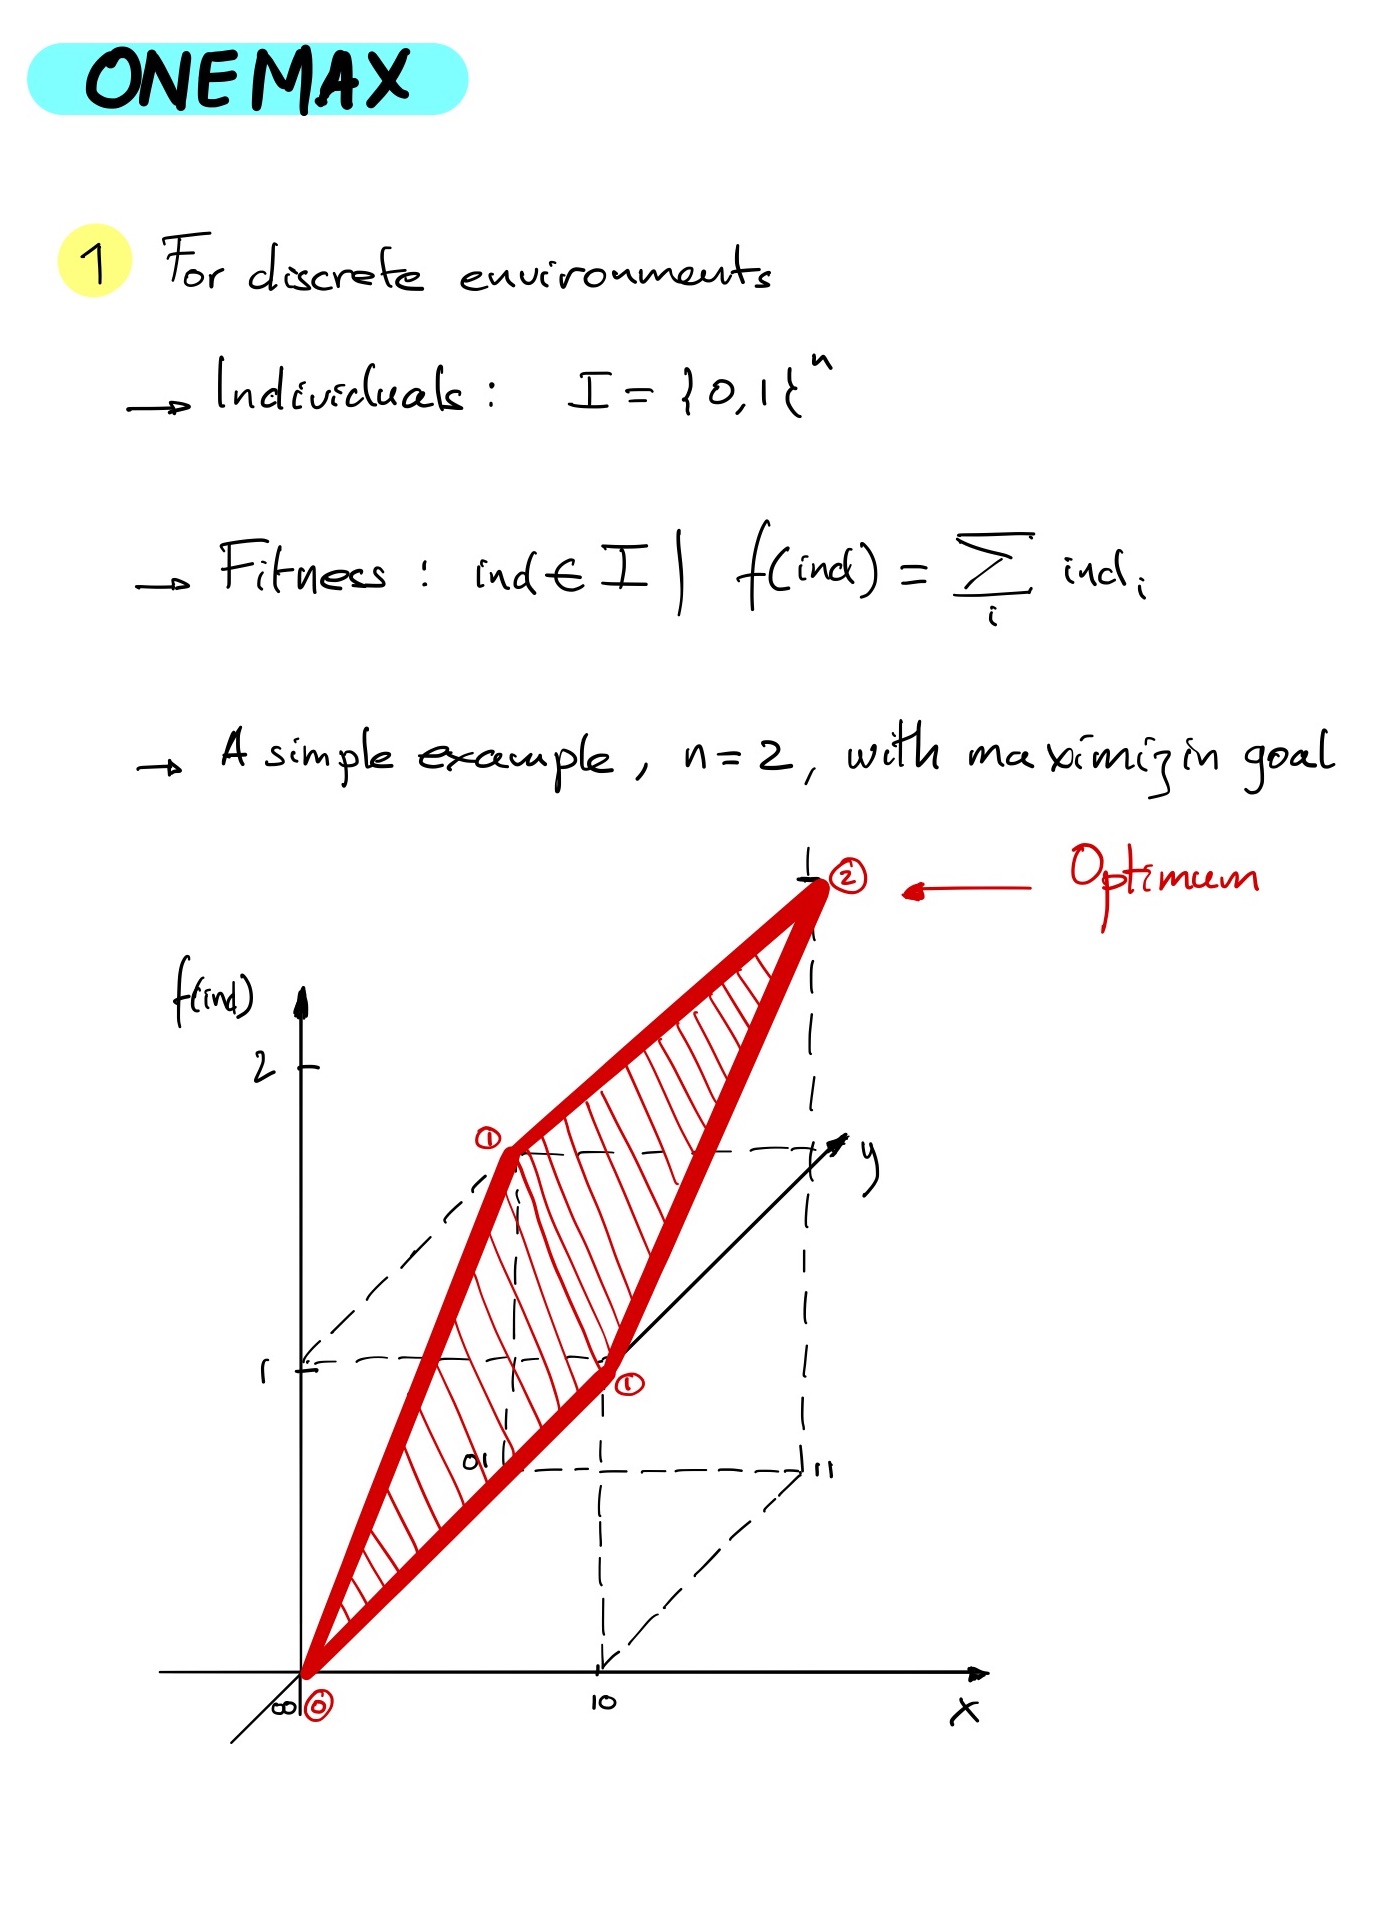 ONEMAX
1 For discrete environments
→ Individuals: I = {0,1}ⁿ
→ Fitness: ind ∈ I | f(ind) = ∑ᵢ indᵢ
→ A simple example, n=2, with maximizin goal
② ← Optimum
f(ind)
2
①
y
1
①
01
11
00 ⓪
10
x